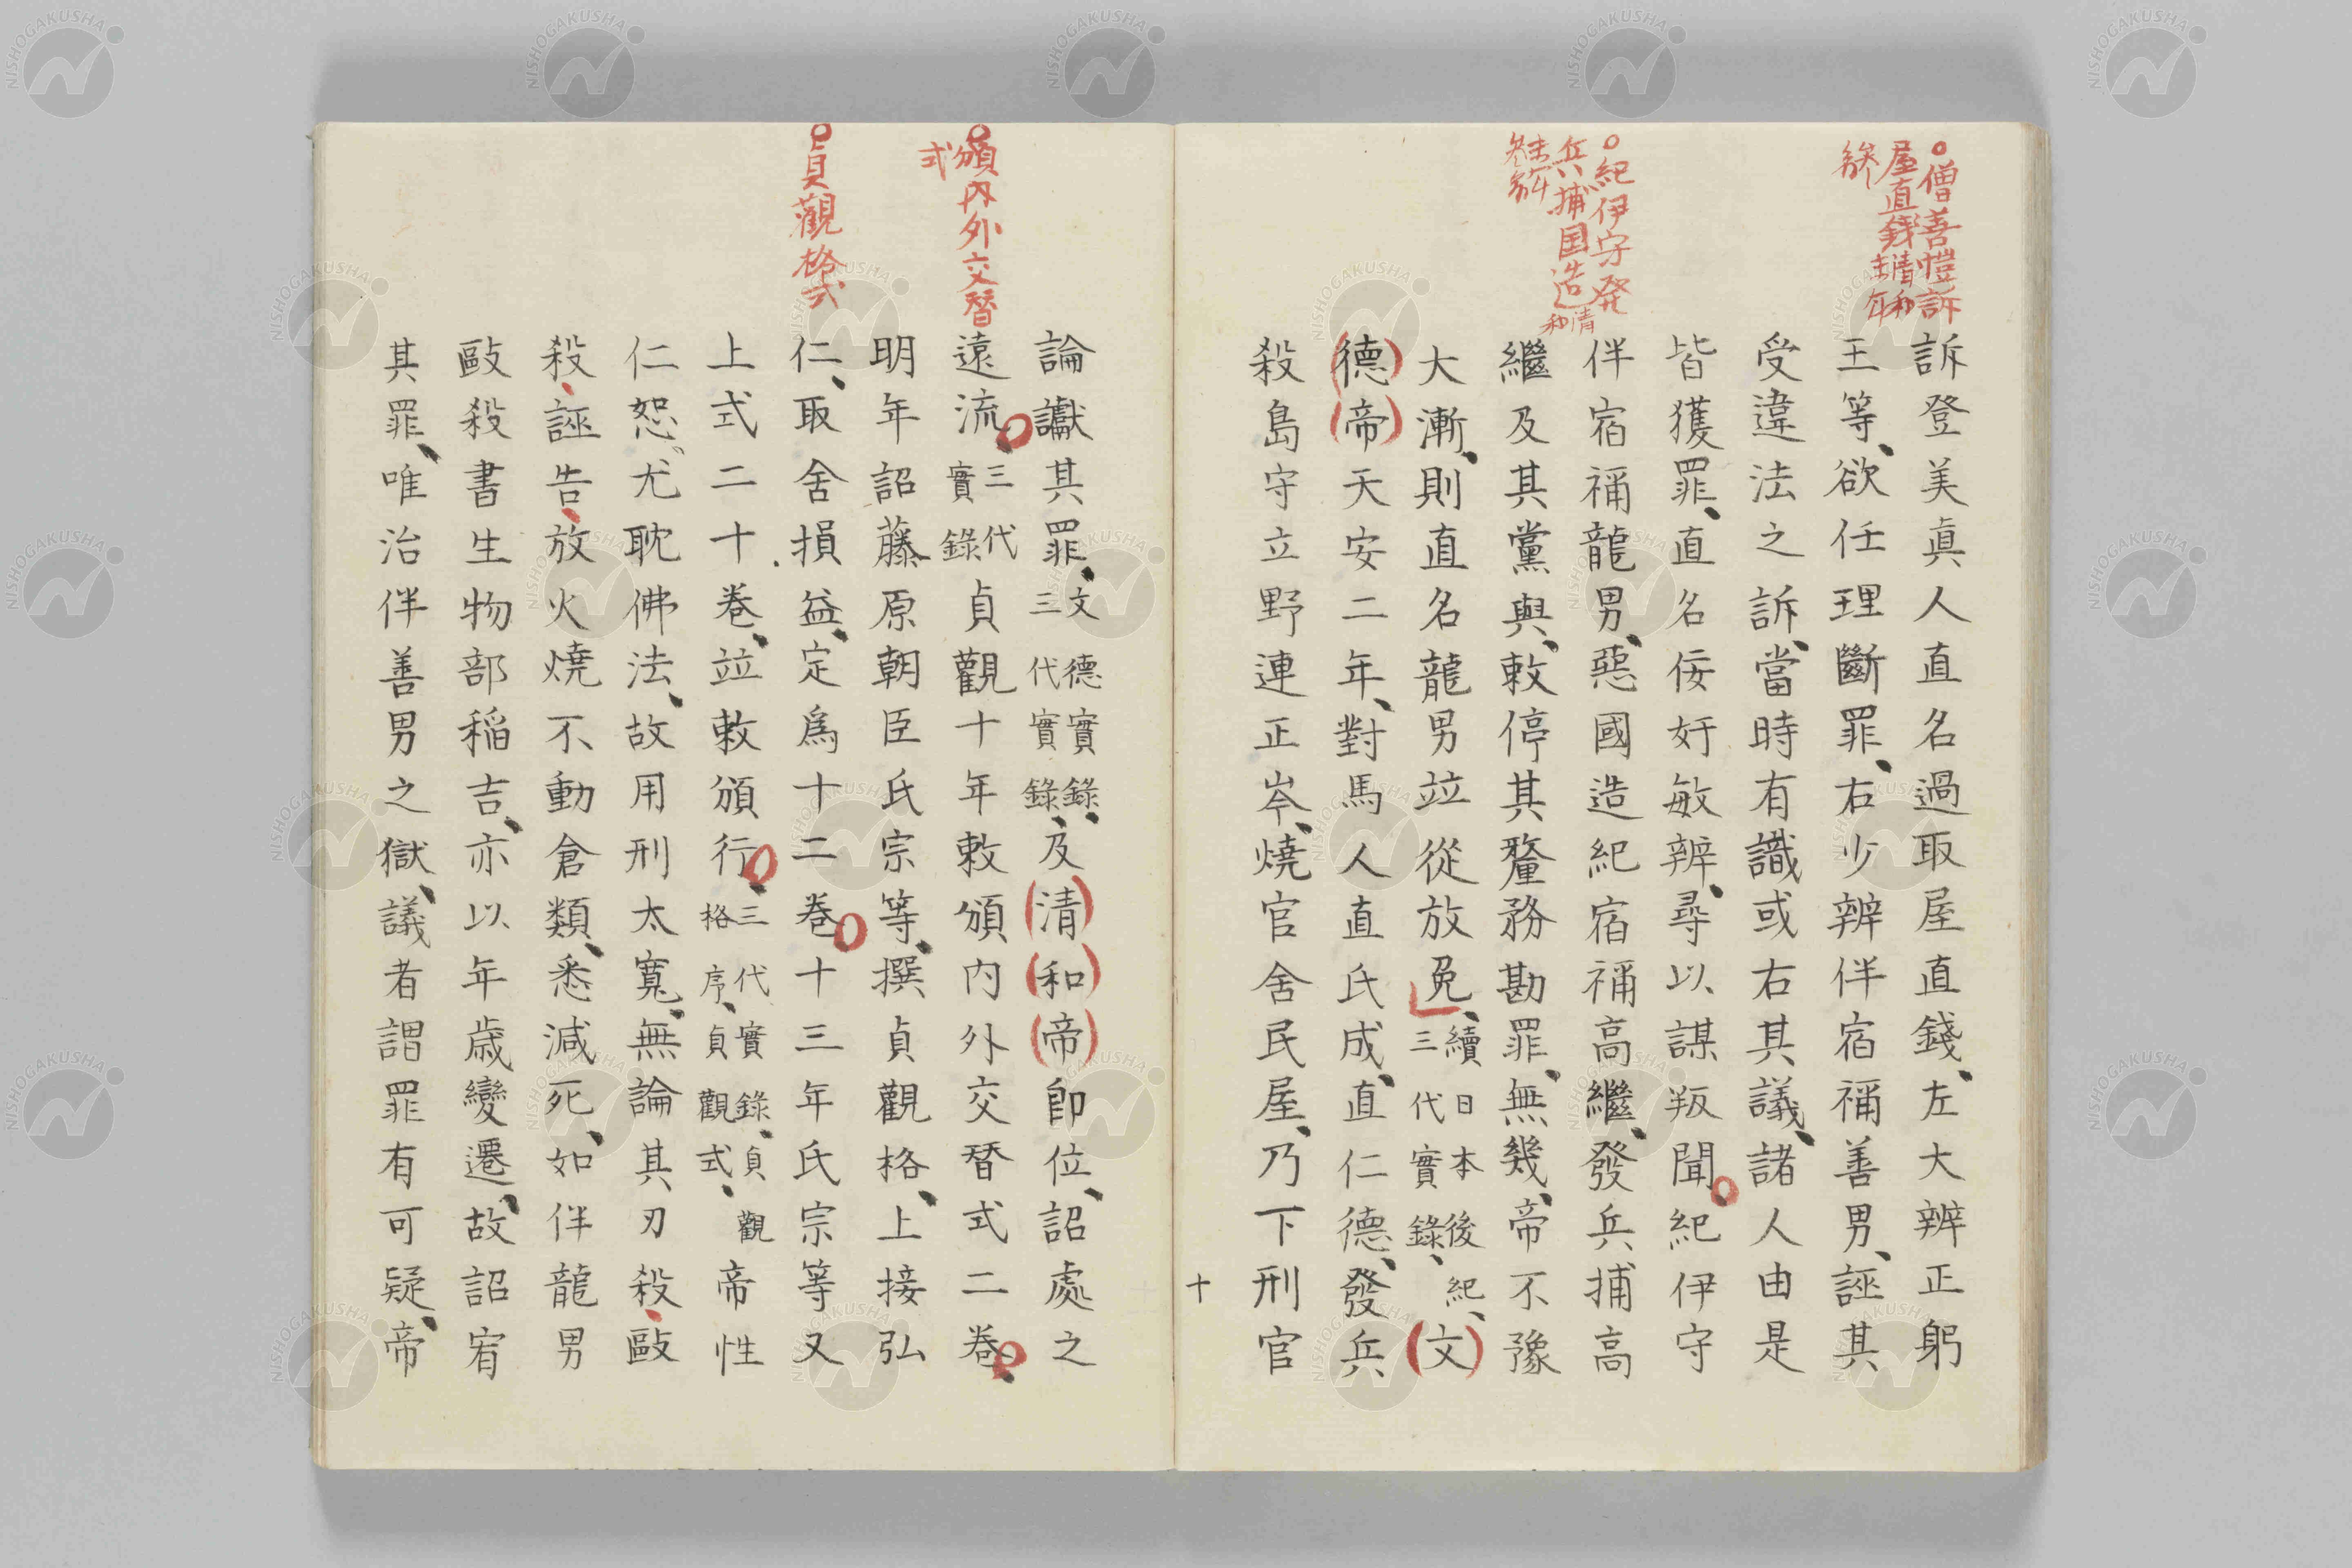 ○僧善愷訴
屋直錢清和
訴登美眞人直名過取屋直錢、左大辨正躬
王等、欲任理斷罪、右少辨伴宿禰善男、誣其
受違法之訴、當時有識或右其議、諸人由是
皆獲罪、直名佞奸敏辨、尋以謀叛聞○紀伊守
○紀伊守発
兵捕国造清和
伴宿禰龍男、惡國造紀宿禰高繼、發兵捕高
繼及其黨與、敕停其釐務勘罪、無幾、帝不豫
大漸、則直名龍男竝從放免、續日本後紀、三代實錄、(文)
(德)(帝)天安二年、對馬人直氏成、直仁德、發兵
殺島守立野連正岑、燒官舍民屋、乃下刑官
十
論讞其罪、文德實錄、三代實錄、及(清)(和)(帝)卽位、詔處之
○頒内外交替
式
遠流○三代實錄貞觀十年敕頒内外交替式二卷○
明年詔藤原朝臣氏宗等、撰貞觀格、上接弘
○貞觀格式
仁、取舍損益、定爲十二卷○十三年氏宗等又
上式二十卷、竝敕頒行○、三代實錄、貞觀格序、貞觀式、帝性
仁恕、尤耽佛法、故用刑太寬、無論其刃殺、毆
殺、誣告、放火燒不動倉類、悉減死、如伴龍男
毆殺書生物部稲吉、亦以年歳變遷、故詔宥
其罪、唯治伴善男之獄、議者謂罪有可疑、帝